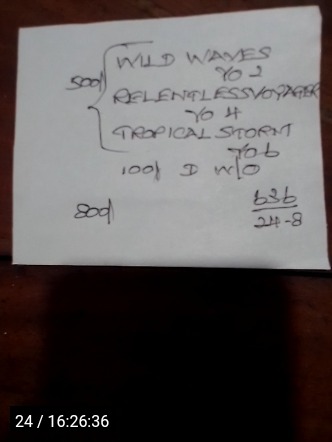 WILD WAVES
500/ YO 2
RELENTLESS VOYAGER
YO 4
TROPICAL STORM
YO 6
100/ D W/O
800/
636
24-8
24 / 16:26:36